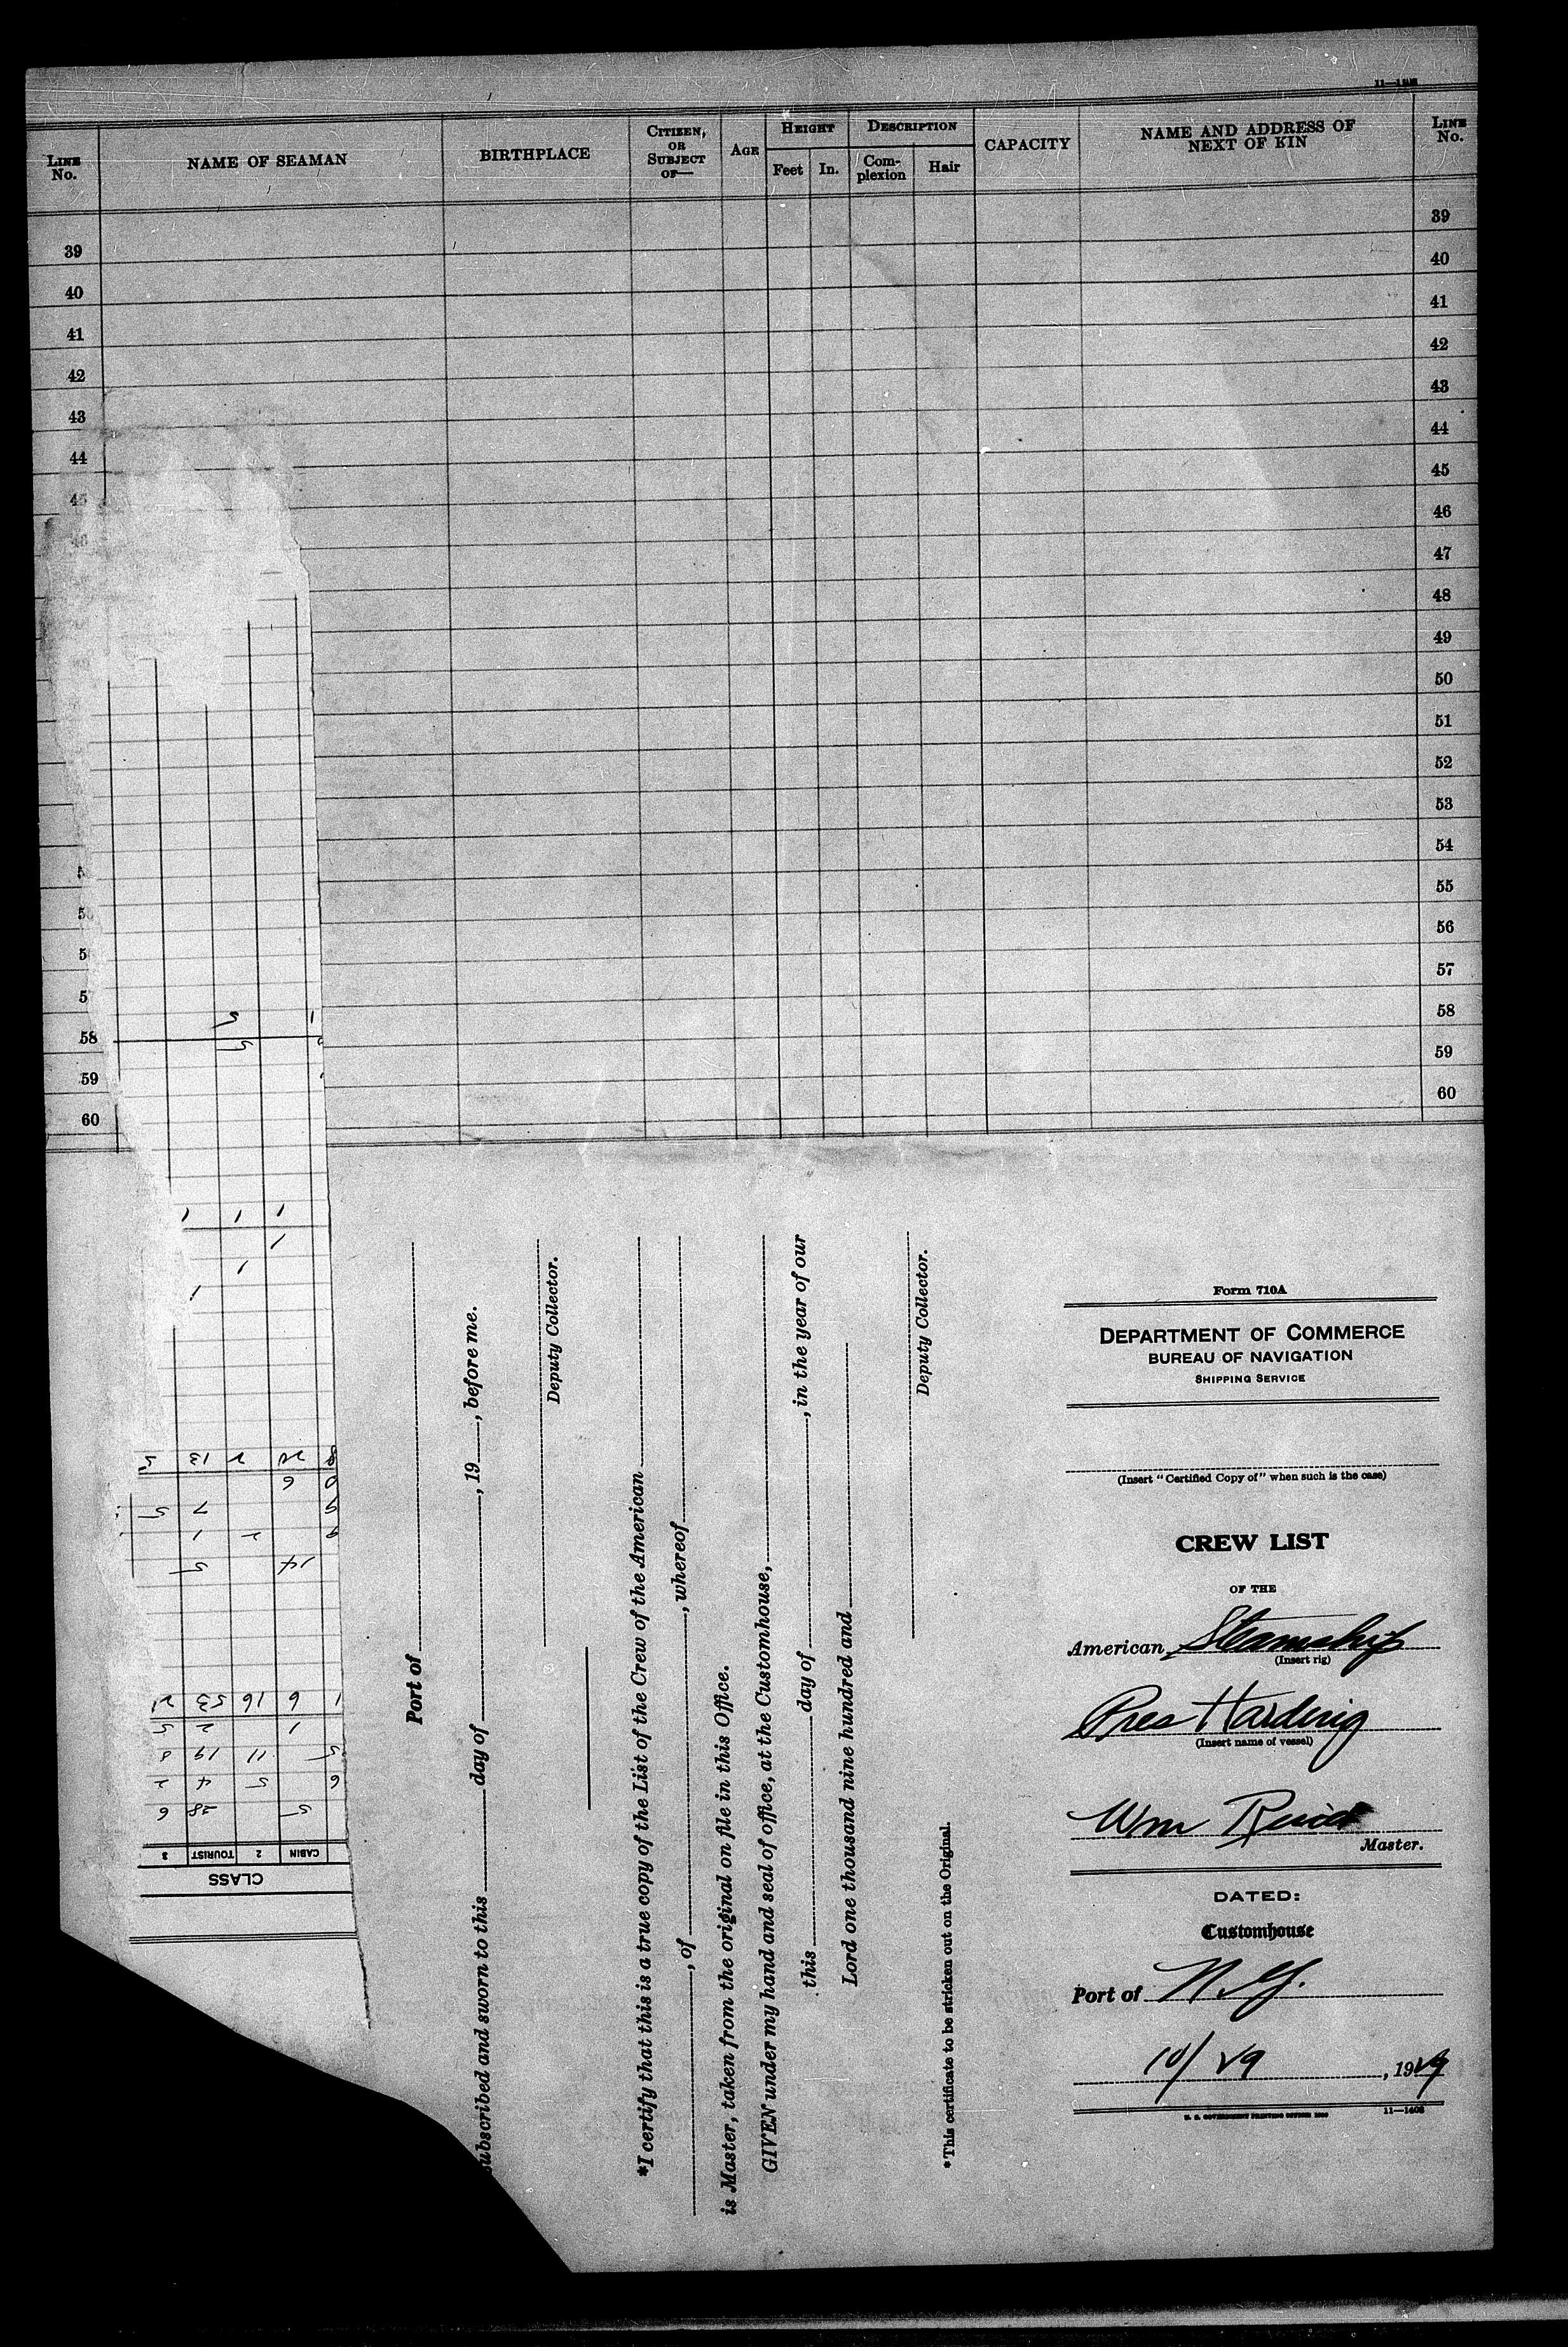 11—1408
LINE No. NAME OF SEAMAN BIRTHPLACE CITIZEN, OR SUBJECT OF— AGE HEIGHT Feet In. DESCRIPTION Complexion Hair CAPACITY NAME AND ADDRESS OF NEXT OF KIN LINE No.
39 39
40 40
41 41
42 42
43 43
44 44
45 45
46 46
47
48
49
50
51
52
53
54
55
56
57
58 58
59 59
60 60
Port of
subscribed and sworn to this day of , 19 , before me.
Deputy Collector.
*I certify that this is a true copy of the List of the Crew of the American
, of , whereof
is Master, taken from the original on file in this Office.
GIVEN under my hand and seal of office, at the Customhouse,
this day of , in the year of our
Lord one thousand nine hundred and
Deputy Collector.
*This certificate to be stricken out on the Original.
CLASS
CABIN 2 TOURIST 3
5 28 6
6 5 4 2
5 11 19 8
1 2 5
1 6 16 53 21
14 5
9 2 1
9 7 5
0 6
8 20 2 13 5
1
1
1
1 1 1
5
5
Form 710A
DEPARTMENT OF COMMERCE
BUREAU OF NAVIGATION
SHIPPING SERVICE
(Insert "Certified Copy of" when such is the case)
CREW LIST
OF THE
American Steamship
(Insert rig)
Pres Harding
(Insert name of vessel)
Wm Reid
Master.
DATED:
Customhouse
Port of N.Y.
10/29 , 1929
U. S. GOVERNMENT PRINTING OFFICE 11—1408